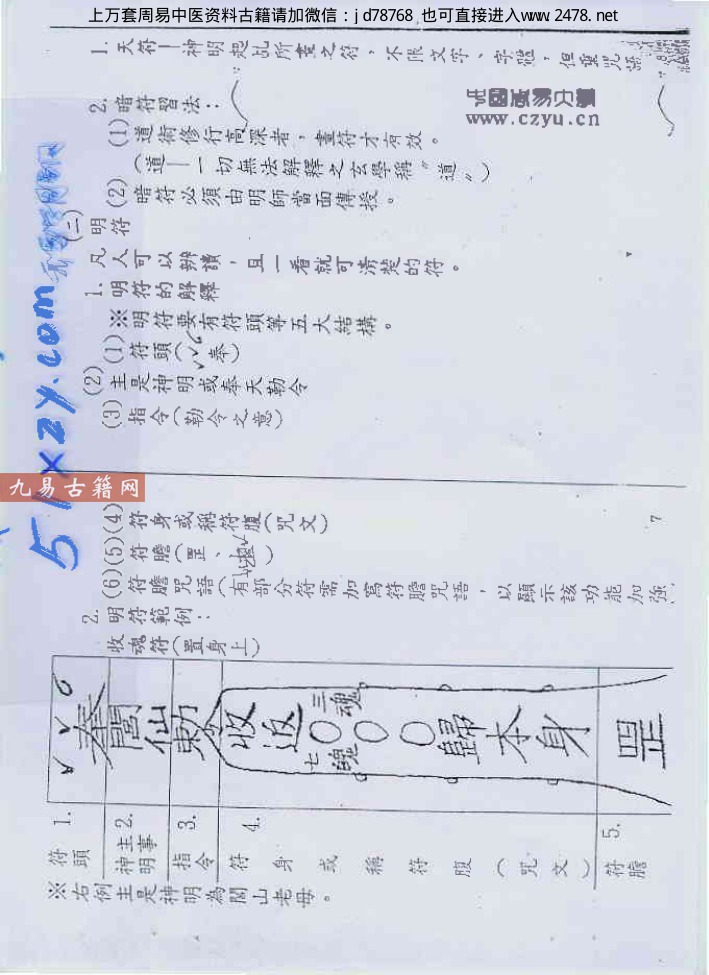 上万套周易中医资料古籍请加微信：jd78768 也可直接进入www.2478.net
1. 天符—神明起乩所畫之符，不限文字、字體，但重咒語
2. 暗符習法：
(1) 道術修行高深者，畫符才有效。
（道—一切無法解釋之玄學稱〝道〞）
(2) 暗符必須由明師當面傳授。
(二) 明符
凡人可以辨讀，且一看就可清楚的符。
1. 明符的解釋
※明符要有符頭等五大結構。
(1) 符頭（奉）
(2) 主是神明或奉天勅令
(3) 指令（勅令之意）
(4) 符身或稱符腹（咒文）
(5) 符膽（罡、）
(6) 符膽咒語（有部分符需加寫符膽咒語，以顯示該功能加強
2. 明符範例：
收魂符（置身上）
奉 閭仙 勅 收返 三魂 七魄 歸本身 罡
1. 符頭
2. 主事神明
3. 指令
4. 符身或稱符腹（咒文）
5. 符膽
※右例主是神明為閭山老母。
7
www.czyu.cn
51xzy.com
九易古籍网